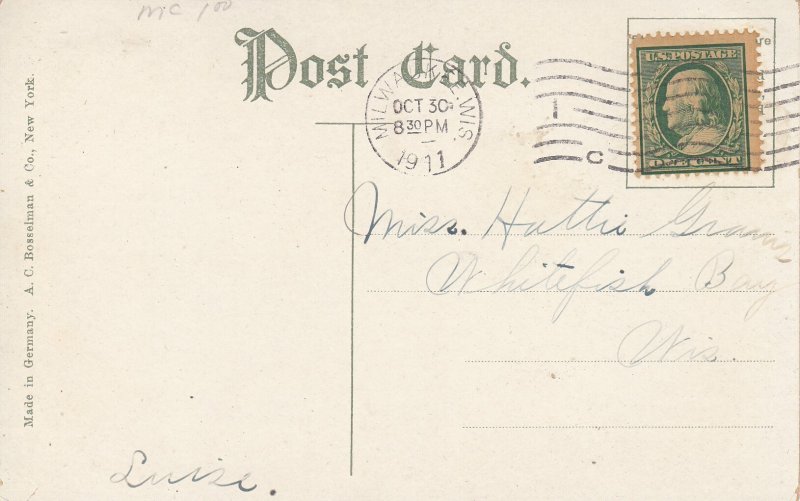 MC 1 00
Post Card.
MILWAUKEE, WIS.
OCT 30
8 30 PM
1911
1
C
U.S. POSTAGE
ONE CENT
Miss. Hattie
Whitefish Bay
Wis.
Luise.
Made in Germany. A. C. Bosselman & Co., New York.